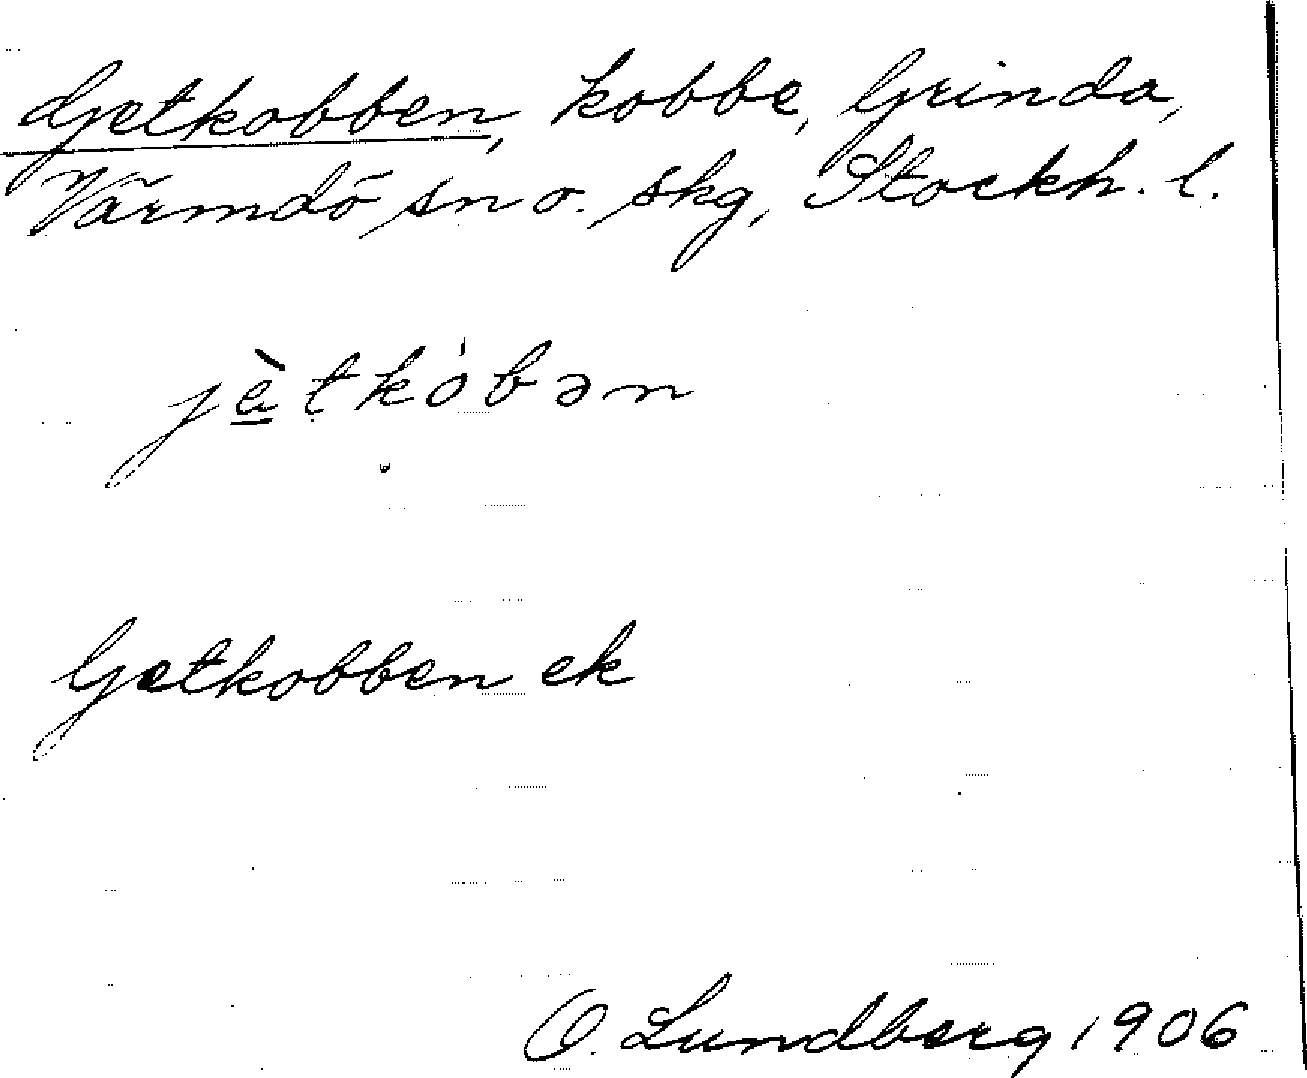 Getkobben, kobbe, Grinda,
Värmdö sn o. skg, Stockh. l.
jètkȯbən
Getkobben ek
O. Lundberg 1906